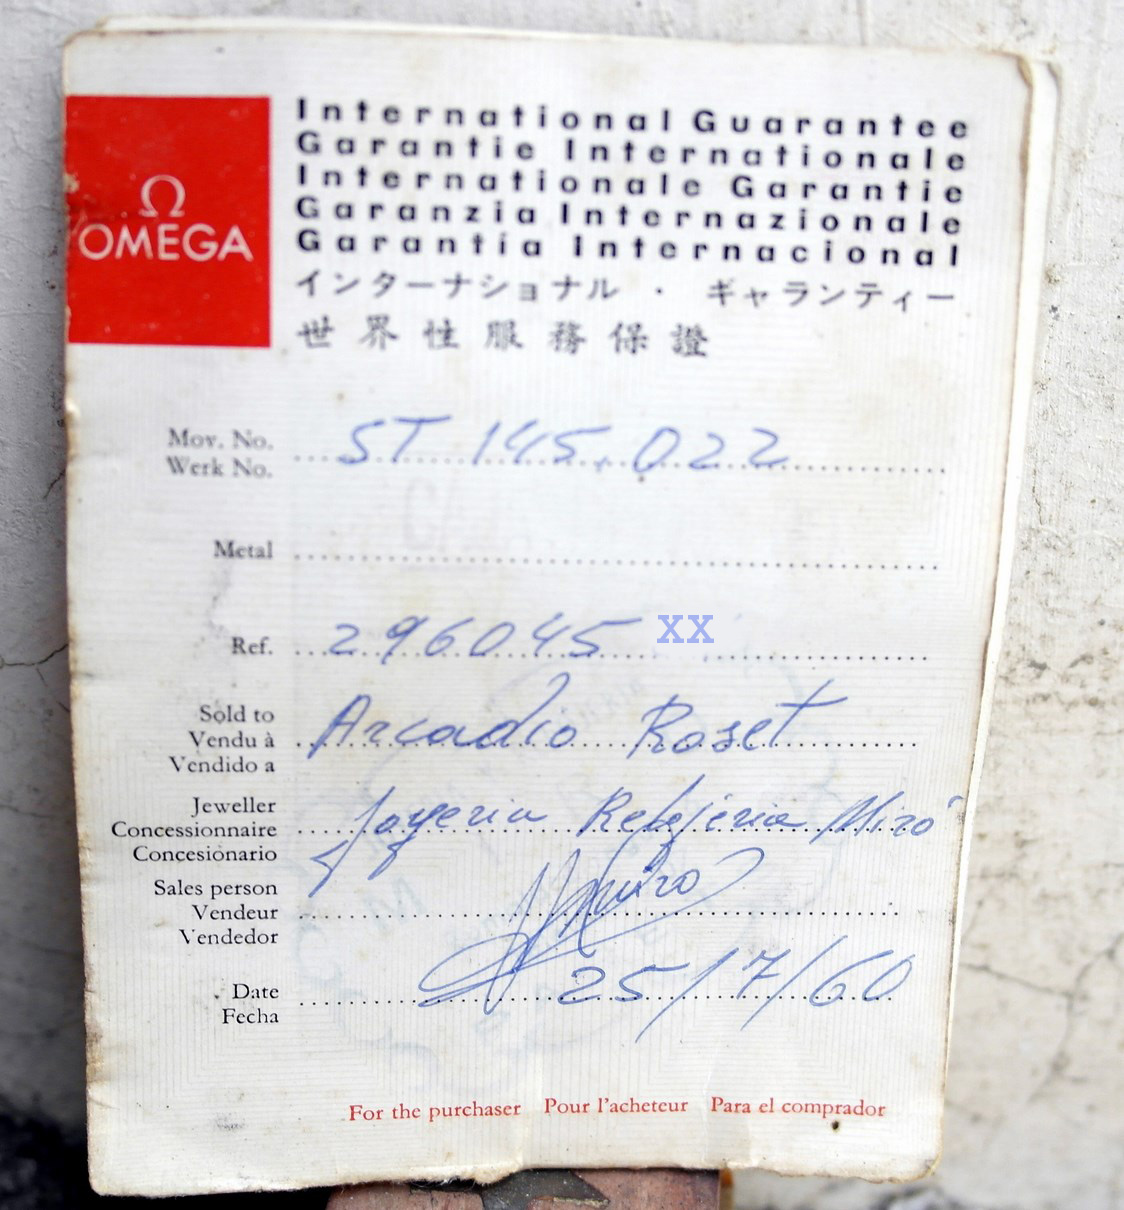 Ω
OMEGA
International Guarantee
Garantie Internationale
Internationale Garantie
Garanzia Internazionale
Garantía Internacional
インターナショナル ・ ギャランティー
世界性服務保證
Mov. No. ST 145.022
Werk No.
Metal
Ref. 296045 XX
Sold to
Vendu à Arcadio Roset
Vendido a
Jeweller
Concessionnaire Joyeria Relojeria Miró
Concesionario
Sales person
Vendeur Miro
Vendedor
Date 25/7/60
Fecha
For the purchaser Pour l'acheteur Para el comprador